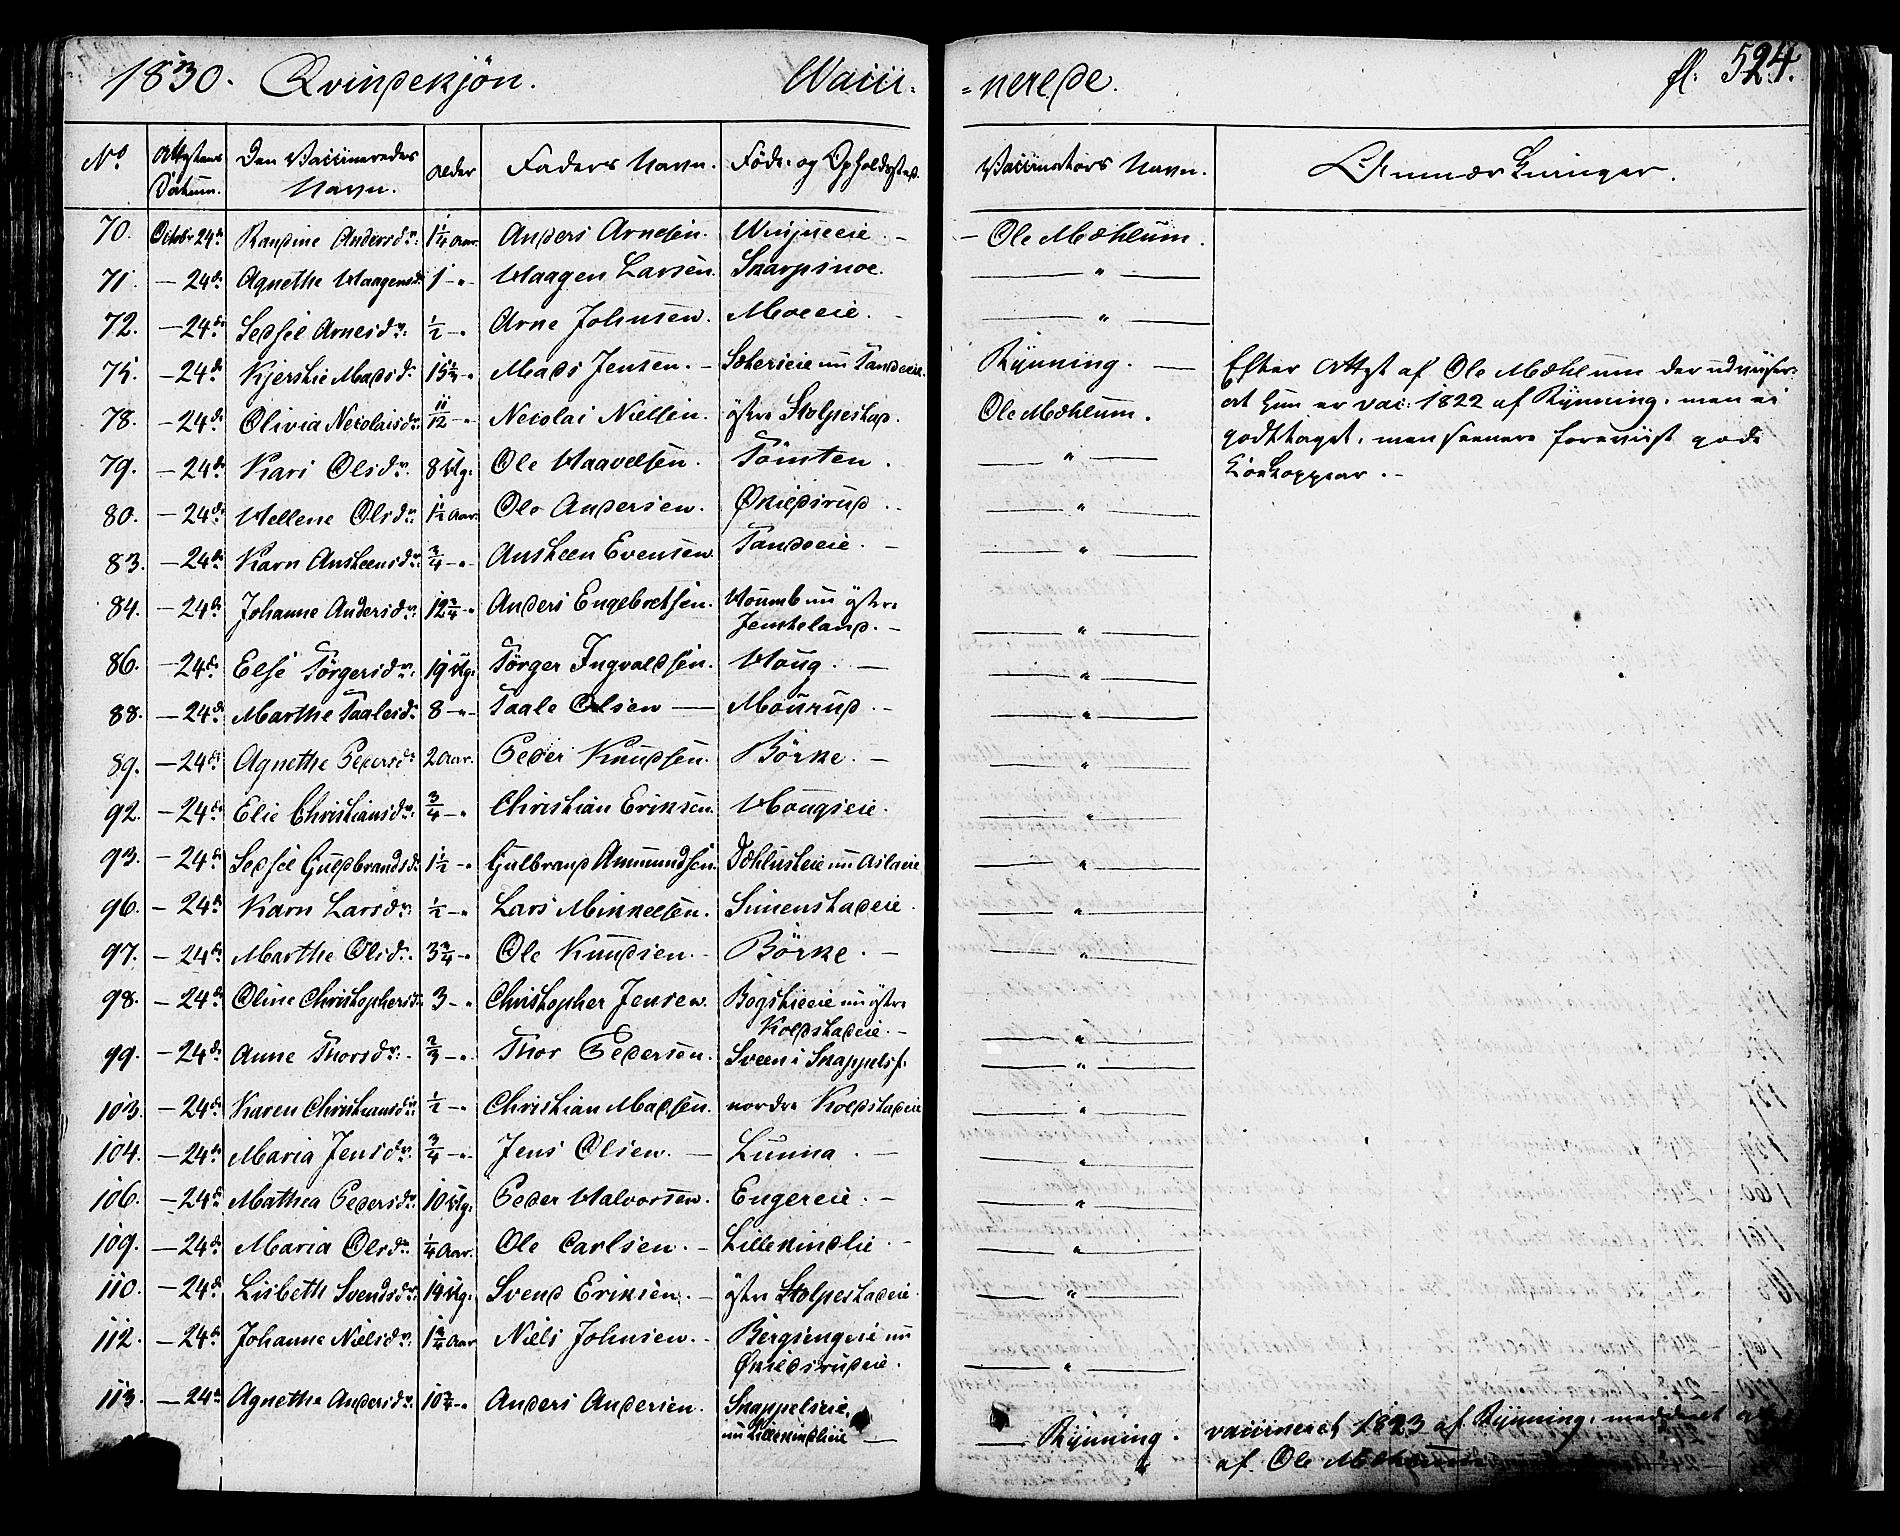 1830. Qvindekjön. Vacci- -nerede. fl. 524.
No Attestens Datum. Den Vaccineredes Navn. Alder Faders Navn. Föde- og Opholdssted. Vaccinators Navn. Anmærkninger.
70. Octobr 24de Randine Andersdr: 1 1/4 Aar. Anders Arnesen. Winjueeie. – Ole Mæhlum.
71. – 24de Agnethe Haagensdr 1 –"– Haagen Larsen. Snarpsmoe. – " –
72. – 24de Sedsel Arnesdr: 1/2 –"– Arne Johnsen. Moeeie. – – " –
75. – 24de Kjerstie Madsdr 15 2/3 –"– Mads Jensen. – Sæterseie nu Tandeeie. Rynning. – Efter Attest af Ole Mæhlum der udviiser
78. – 24de Olivia Necolaisdr 11/12 –"– Necolai Nielsen. östre Stolpestad. Ole Mæhlum. at hun er vac: 1822 af Rynning, men ei
79. – 24de Kari Olsdr. 8 Ug. Ole Haavelsen. Tömten. – " – godttaget, men seenere foreviist gode
80. – 24de Hellene Olsdr: 1 1/2 Aar. Ole Andersen. Øxiedsrud. – " – Koekopper. –
83. – 24de Karn Ansteensdr: 3/4 –"– Ansteen Evensen. Tandeeie. – – " –
84. – 24de Johanne Andersdr: 12 3/4 –"– Anders Engebretsen. Houmb nu östre
Jemteland. – – " –
86. – 24de Else Törgersdr: 19 Ug: Törger Ingvaldsen. Houg. – – " –
88. – 24de Marthe Taalesdr 8 –"– Taale Olsen – Mourud. – – " –
89. – 24de Agnethe Pedersdr 2 Aar. Peder Knudsen. Börke. – – " –
92. – 24de Elie Christiansdr: 3/4 –"– Christian Eriksen. Hougseie. – " –
93. – 24de Sedsel Gulbrandsdr 1 1/2 –"– Gulbrand Ammundsen. nu Aslaeie – " –
96. – 24de Karn Larsdr: 1/2 –"– Lars Mikkelsen. Simenstadeie. – " –
97. – 24de Marthe Olsdr. 3 3/4 –"– Ole Knudsen. – Börke. – – " –
98. – 24de Oline Christophersdr 3 –"– Christopher Jensen. Bogstieeie nu östre
Koldstadeie. – – " –
99. – 24de Anne Thorsdr. – 2/3 –"– Thor Pedersen. Sveen i Snappelsf. – " –
103. – 24de Karen Christiansdr: 1/2 –"– Christian Madsen. nordre Koldstadeie – " –
104. – 24de Maria Jensdr: 3/4 –"– Jens Olsen. – Lunna. – – " –
106. – 24de Mathea Pedersdr. 10 Ug. Peder Halvorsen. Engereie. – – " –
109. – 24de Maria Olsdr 1/4 Aar. Ole Carlsen. – Lillekindlie. – " –
110. – 24de Lisbeth Svendsdr. 14 Ug. Svend Eriksen. – östre Stolpestadeie. – " –
112. – 24de Johanne Nielsdr: 1 3/4 Aar Niels Johnsen. – Bergsengeie nu
Øxiedsrudeie. – " –
113. – 24de Agnethe Andersdr. 10 3/4 –"– Anders Andersen. Snappelseie,
nu Lillekindlieie – – Rynning. vaccineret 1823 af Rynning, meddeelt att
af Ole Mæhlum